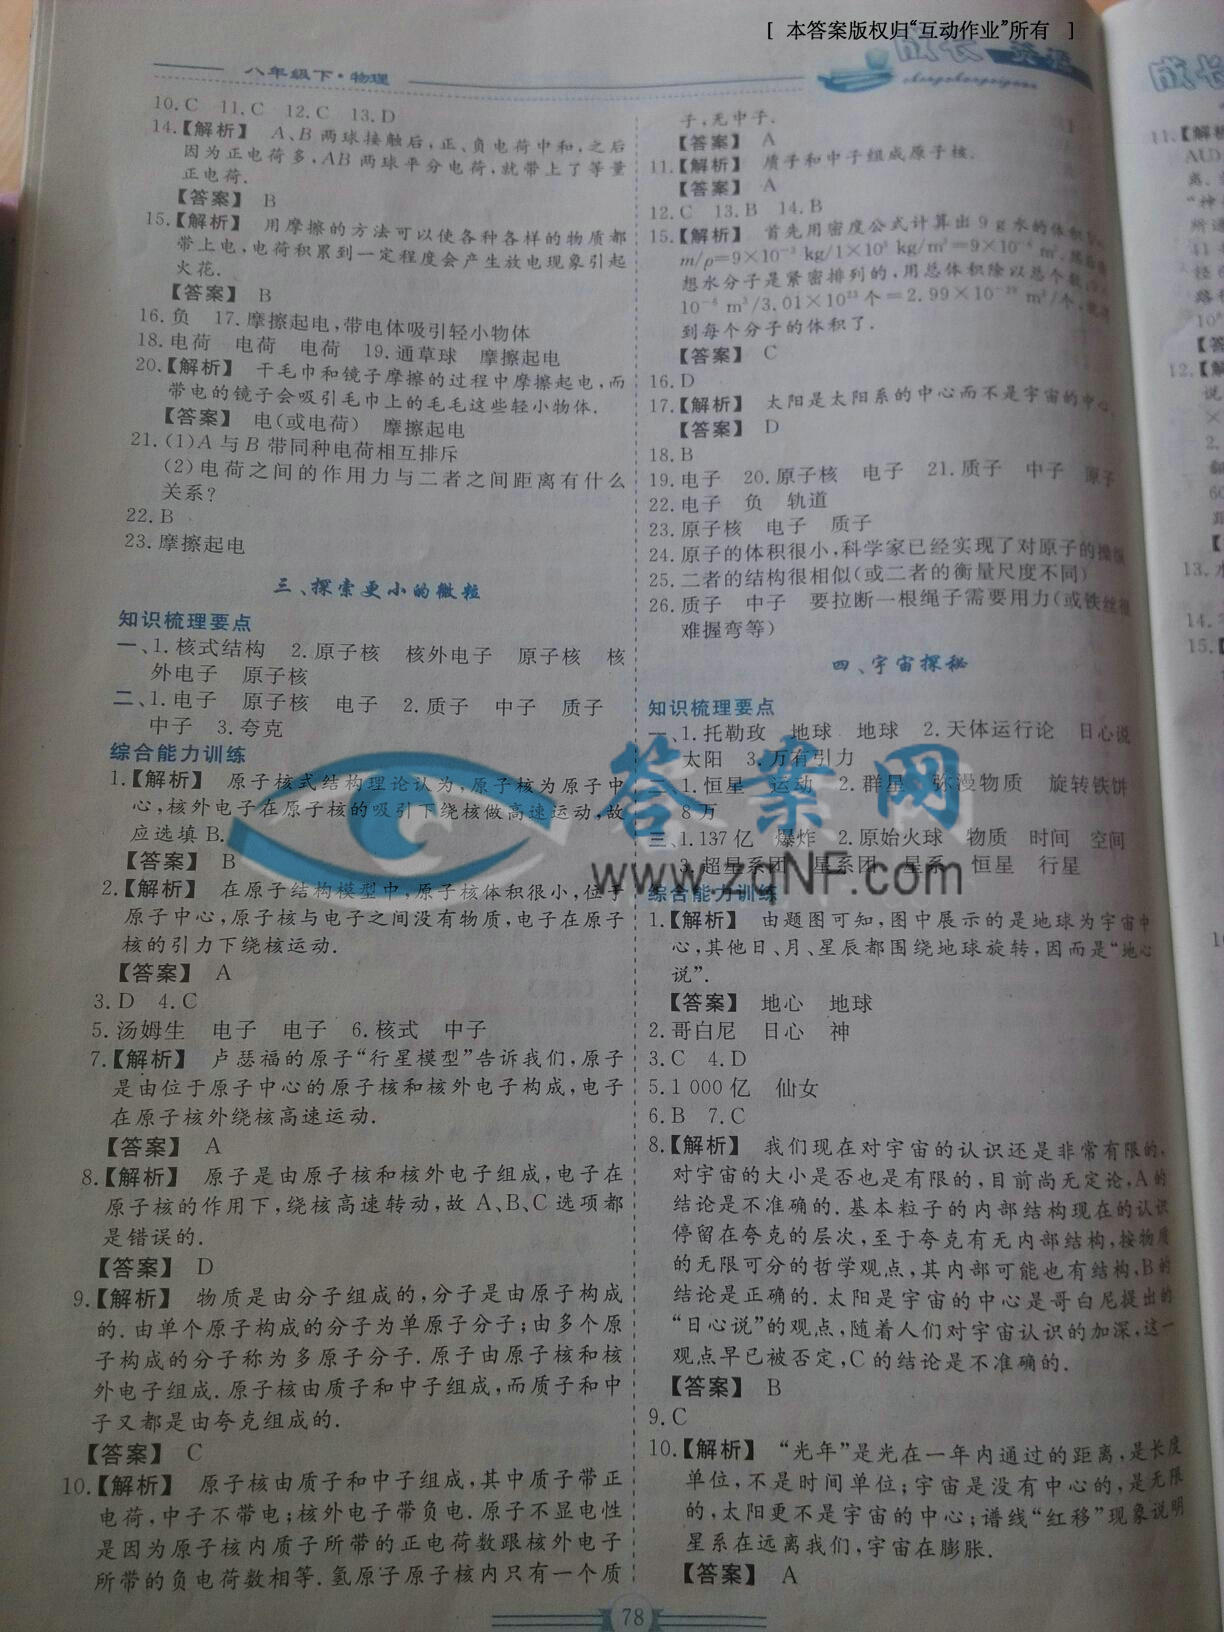 [ 本答案版权归“互动作业”所有 ]
八年级下·物理
成长
10.C 11.C 12.C 13.D
14.【解析】 A、B两球接触后,正、负电荷中和,之后
因为正电荷多,AB两球平分电荷,就带上了等量
正电荷.
【答案】 B
15.【解析】 用摩擦的方法可以使各种各样的物质都
带上电,电荷积累到一定程度会产生放电现象引起
火花.
【答案】 B
16.负 17.摩擦起电,带电体吸引轻小物体
18.电荷 电荷 电荷 19.通草球 摩擦起电
20.【解析】 干毛巾和镜子摩擦的过程中摩擦起电,而
带电的镜子会吸引毛巾上的毛毛这些轻小物体.
【答案】 电(或电荷) 摩擦起电
21.(1)A与B带同种电荷相互排斥
(2)电荷之间的作用力与二者之间距离有什么
关系?
22.B
23.摩擦起电
三、探索更小的微粒
知识梳理要点
一、1.核式结构 2.原子核 核外电子 原子核 核
外电子 原子核
二、1.电子 原子核 电子 2.质子 中子 质子
中子 3.夸克
综合能力训练
1.【解析】 原子核式结构理论认为,原子核为原子中
心,核外电子在原子核的吸引下绕核做高速运动,故
应选填B.
【答案】 B
2.【解析】 在原子结构模型中,原子核体积很小,位于
原子中心,原子核与电子之间没有物质,电子在原子
核的引力下绕核运动.
【答案】 A
3.D 4.C
5.汤姆生 电子 电子 6.核式 中子
7.【解析】 卢瑟福的原子“行星模型”告诉我们,原子
是由位于原子中心的原子核和核外电子构成,电子
在原子核外绕核高速运动.
【答案】 A
8.【解析】 原子是由原子核和核外电子组成,电子在
原子核的作用下,绕核高速转动,故A、B、C选项都
是错误的.
【答案】 D
9.【解析】 物质是由分子组成的,分子是由原子构成
的.由单个原子构成的分子为单原子分子;由多个原
子构成的分子称为多原子分子.原子由原子核和核
外电子组成.原子核由质子和中子组成,而质子和中
子又都是由夸克组成的.
【答案】 C
10.【解析】 原子核由质子和中子组成,其中质子带正
电荷,中子不带电;核外电子带负电.原子不显电性
是因为原子核内质子所带的正电荷数跟核外电子
所带的负电荷数相等.氢原子原子核内只有一个质
子,无中子.
【答案】 A
11.【解析】 质子和中子组成原子核.
【答案】 A
12.C 13.B 14.B
15.【解析】 首先用密度公式计算出9 g水的体积
m/ρ=9×10⁻³ kg/1×10³ kg/m³=9×10⁻⁶ m³.
想水分子是紧密排列的,用总体积除以总个数
10⁻⁶ m³/3.01×10²³个=2.99×10⁻²⁹ m³/个,
到每个分子的体积了.
【答案】 C
16.D
17.【解析】 太阳是太阳系的中心而不是宇宙的中心.
【答案】 D
18.B
19.电子 20.原子核 电子 21.质子 中子 原子
22.电子 负 轨道
23.原子核 电子 质子
24.原子的体积很小,科学家已经实现了对原子的操纵
25.二者的结构很相似(或二者的衡量尺度不同)
26.质子 中子 要拉断一根绳子需要用力(或铁丝很
难握弯等)
四、宇宙探秘
知识梳理要点
一、1.托勒玫 地球 地球 2.天体运行论 日心说
太阳 3.万有引力
二、1.恒星 运动 2.群星 弥漫物质 旋转铁饼
8万
三、1.137亿 爆炸 2.原始火球 物质 时间 空间
3.超星系团 星系团 星系 恒星 行星
综合能力训练
1.【解析】 由题图可知,图中展示的是地球为宇宙中
心,其他日、月、星辰都围绕地球旋转,因而是“地心
说”.
【答案】 地心 地球
2.哥白尼 日心 神
3.C 4.D
5.1 000亿 仙女
6.B 7.C
8.【解析】 我们现在对宇宙的认识还是非常有限的,
对宇宙的大小是否也是有限的,目前尚无定论,A的
结论是不准确的.基本粒子的内部结构现在的认识
停留在夸克的层次,至于夸克有无内部结构,按物质
的无限可分的哲学观点,其内部可能也有结构,B的
结论是正确的.太阳是宇宙的中心是哥白尼提出的
“日心说”的观点,随着人们对宇宙认识的加深,这一
观点早已被否定,C的结论是不准确的.
【答案】 B
9.C
10.【解析】 “光年”是光在一年内通过的距离,是长度
单位,不是时间单位;宇宙是没有中心的,是无限
的,太阳更不是宇宙的中心;谱线“红移”现象说明
星系在远离我们,宇宙在膨胀.
【答案】 A
78
答案网
www.zqNF.com
成长
11.【解析
AUD
“神
所
41
径
路
12.【解
说
×
2.
60
13.
14.
15.